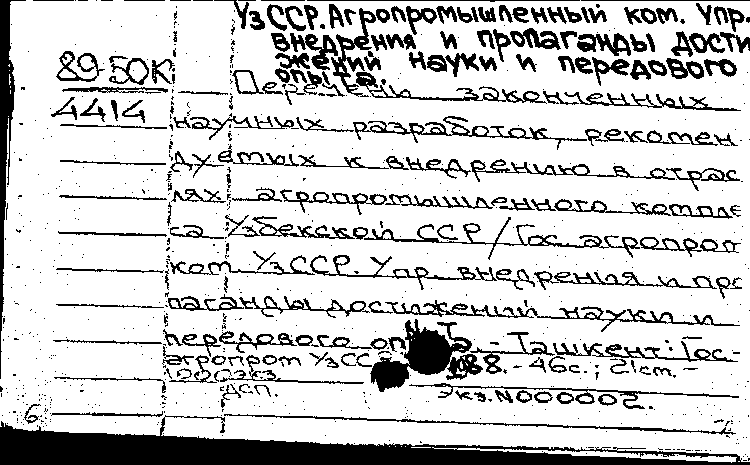 УзССР. Агропромышленный ком. Упр.
внедрения и пропаганды дости
жений науки и передового
опыта.
89-50К
4414
Перечень законченных
научных разработок, рекомен
дуемых к внедрению в отрас
лях агропромышленного компле
са Узбекской ССР / Гос. агропром
ком УзССР. Упр. внедрения и про
паганды достижений науки и
передового опыта. - Ташкент: Гос-
агропром УзССР 1988. - 46с.; 21см. -
1000экз.
ДСП. Экз.N000002.
6